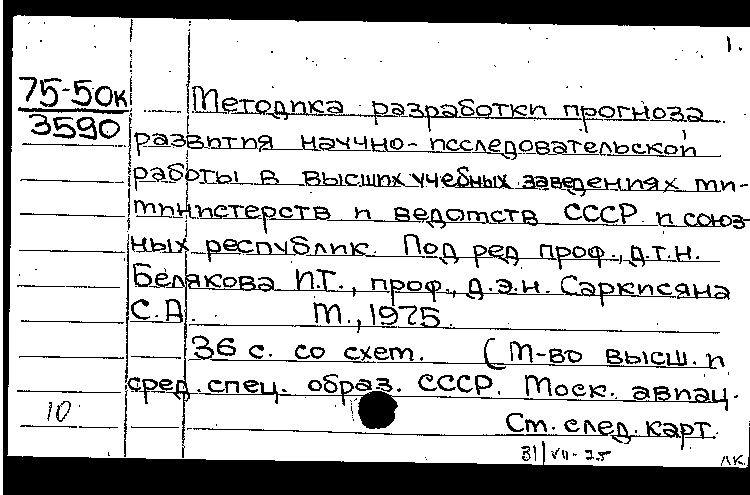 1.
75-50к
3590
Методика разработки прогноза
развития научно-исследовательской
работы в высших учебных заведениях ми-
министерств и ведомств СССР и союз-
ных республик. Под ред проф., д.т.н.
Белякова И.Т., проф., д.э.н. Саркисяна
С.А. М., 1975.
36 с. со схем. (М-во высш. и
сред. спец. образ. СССР. Моск. авиац.
10
См. след. карт.
31/VII-75
ЛК